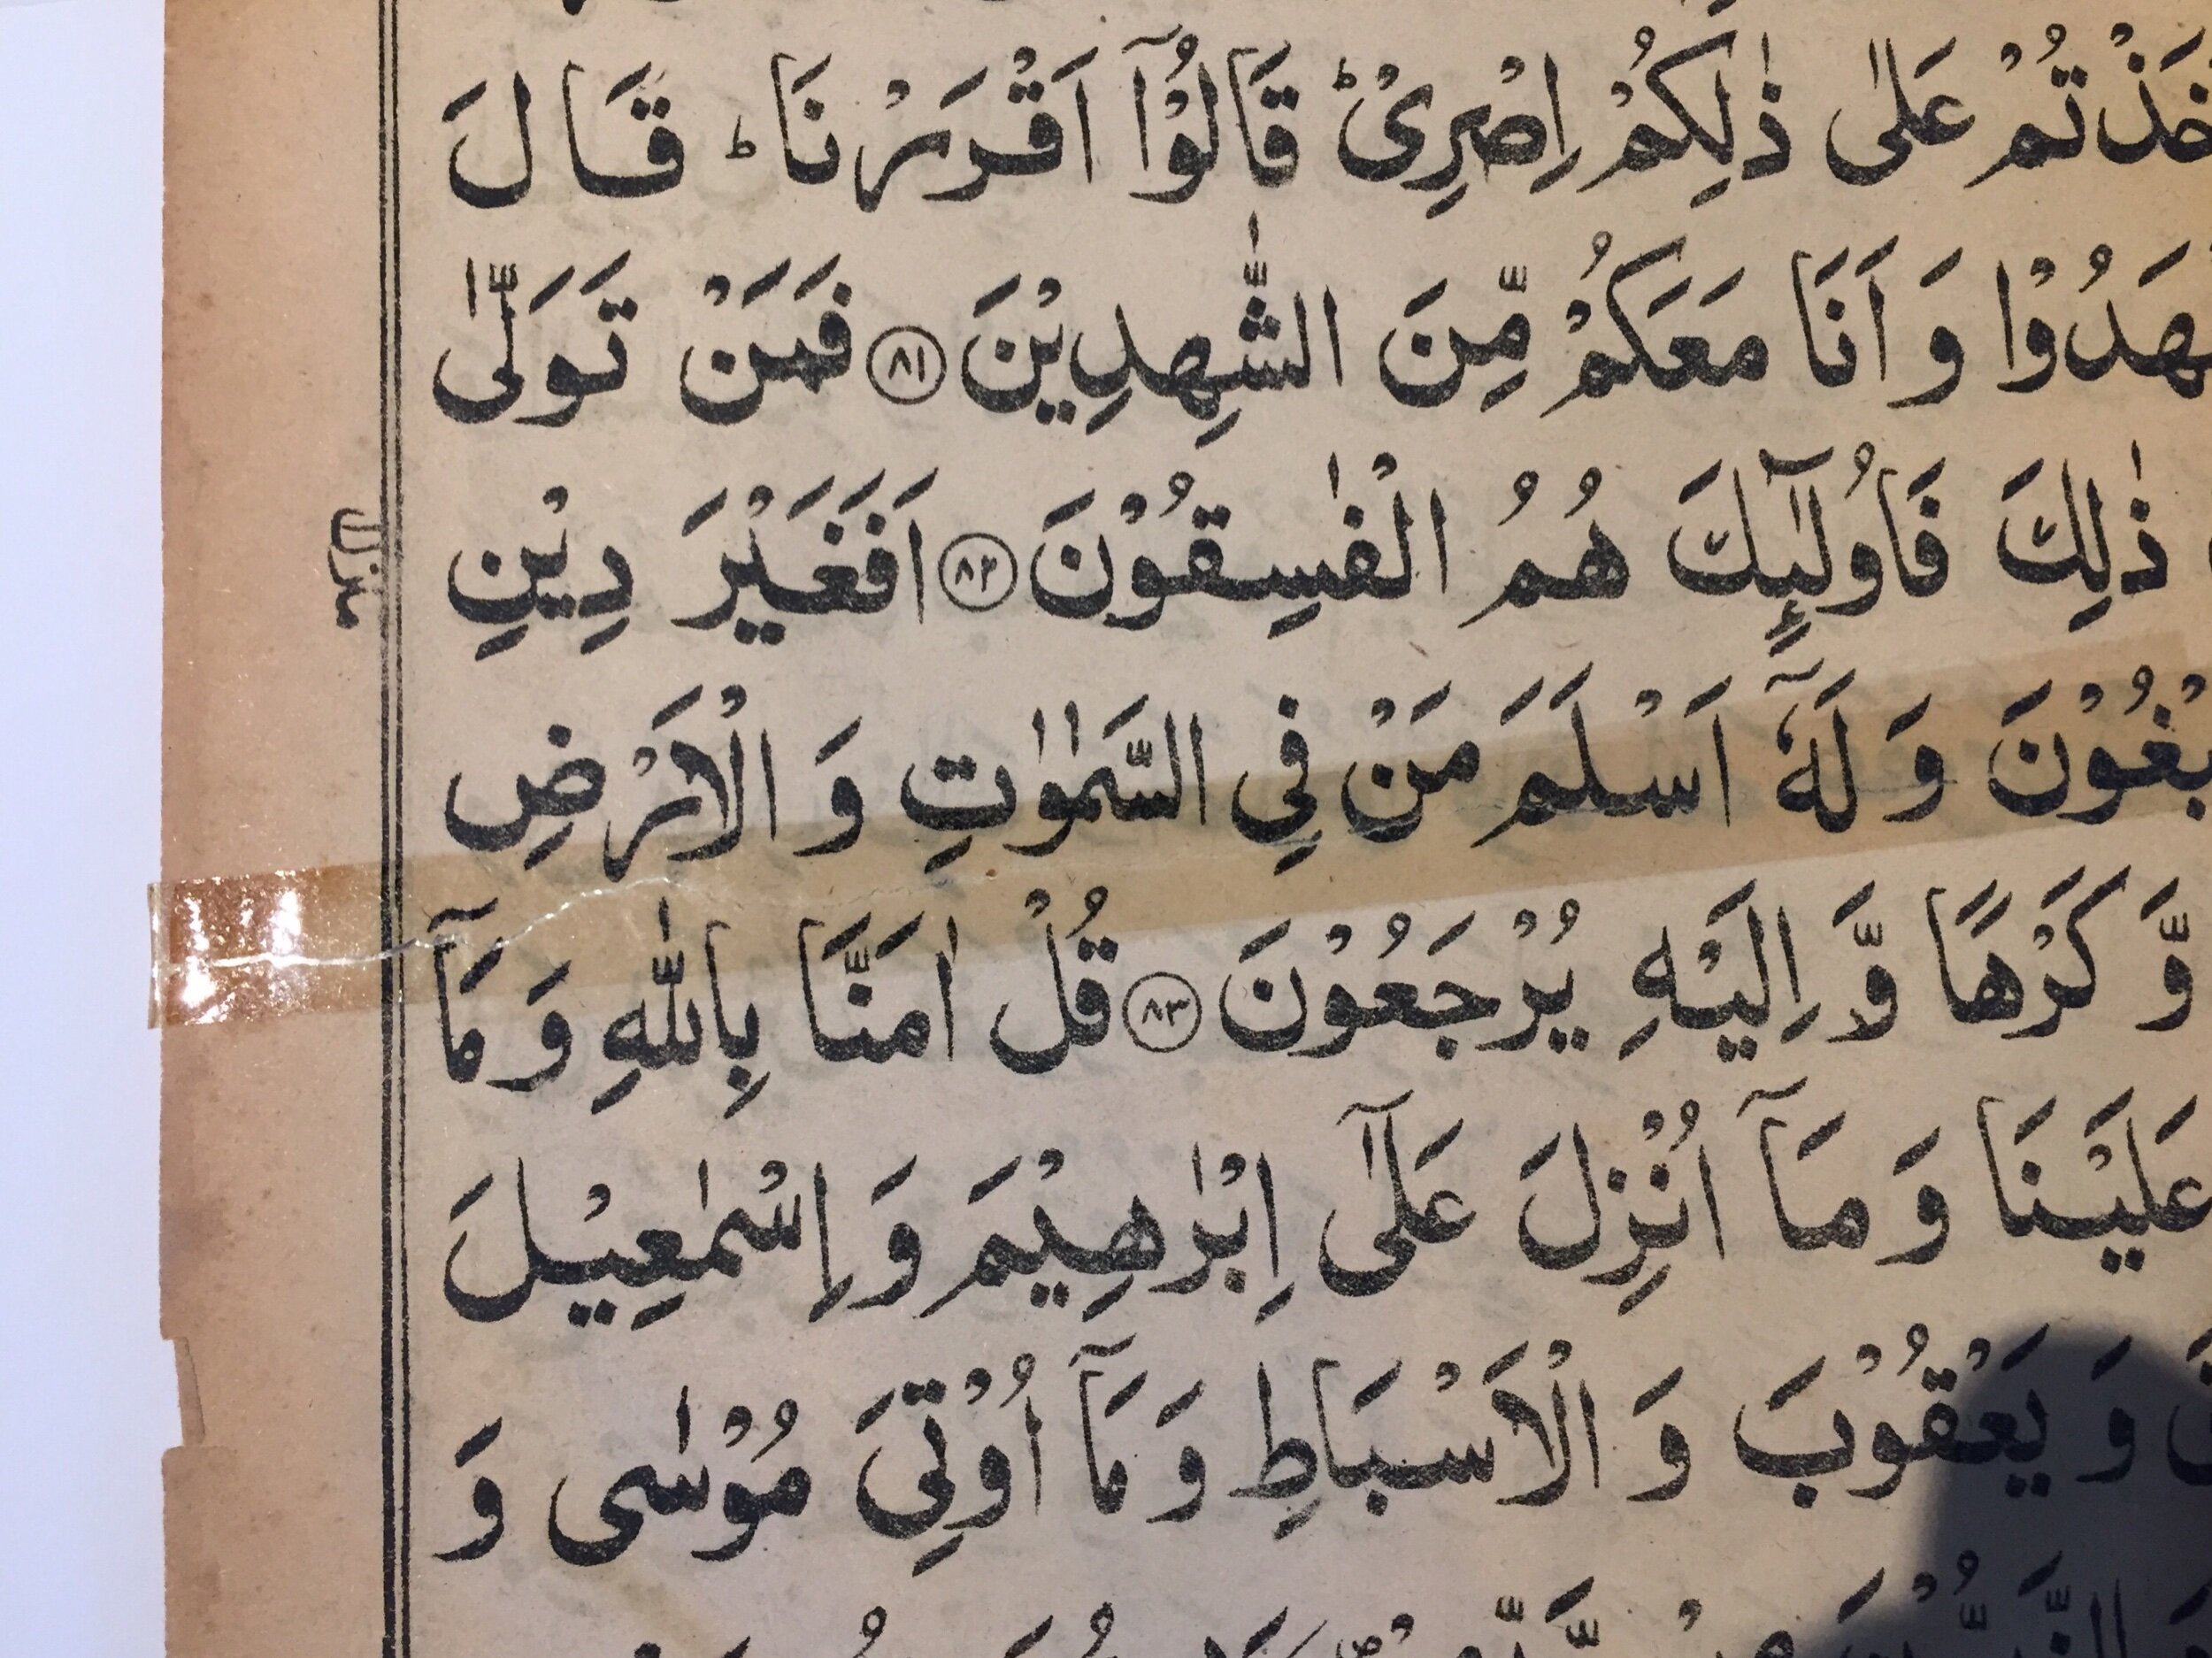 عَلٰى ذٰلِكُمْ اِصْرِىْ ؕ قَالُوْۤا اَقْرَرْنَا ؕ قَالَ
وَ اَنَا مَعَكُمْ مِّنَ الشّٰهِدِيْنَ ﴿۸۱﴾ فَمَنْ تَوَلّٰى
ذٰلِكَ فَاُولٰٓئِكَ هُمُ الْفٰسِقُوْنَ ﴿۸۲﴾ اَفَغَيْرَ دِيْنِ
وَ لَهٗۤ اَسْلَمَ مَنْ فِى السَّمٰوٰتِ وَ الْاَرْضِ
وَّ كَرْهًا وَّ اِلَيْهِ يُرْجَعُوْنَ ﴿۸۳﴾ قُلْ اٰمَنَّا بِاللّٰهِ وَ مَاۤ
عَلَيْنَا وَ مَاۤ اُنْزِلَ عَلٰٓى اِبْرٰهِيْمَ وَ اِسْمٰعِيْلَ
وَ يَعْقُوْبَ وَ الْاَسْبَاطِ وَ مَاۤ اُوْتِىَ مُوْسٰى وَ
منزل